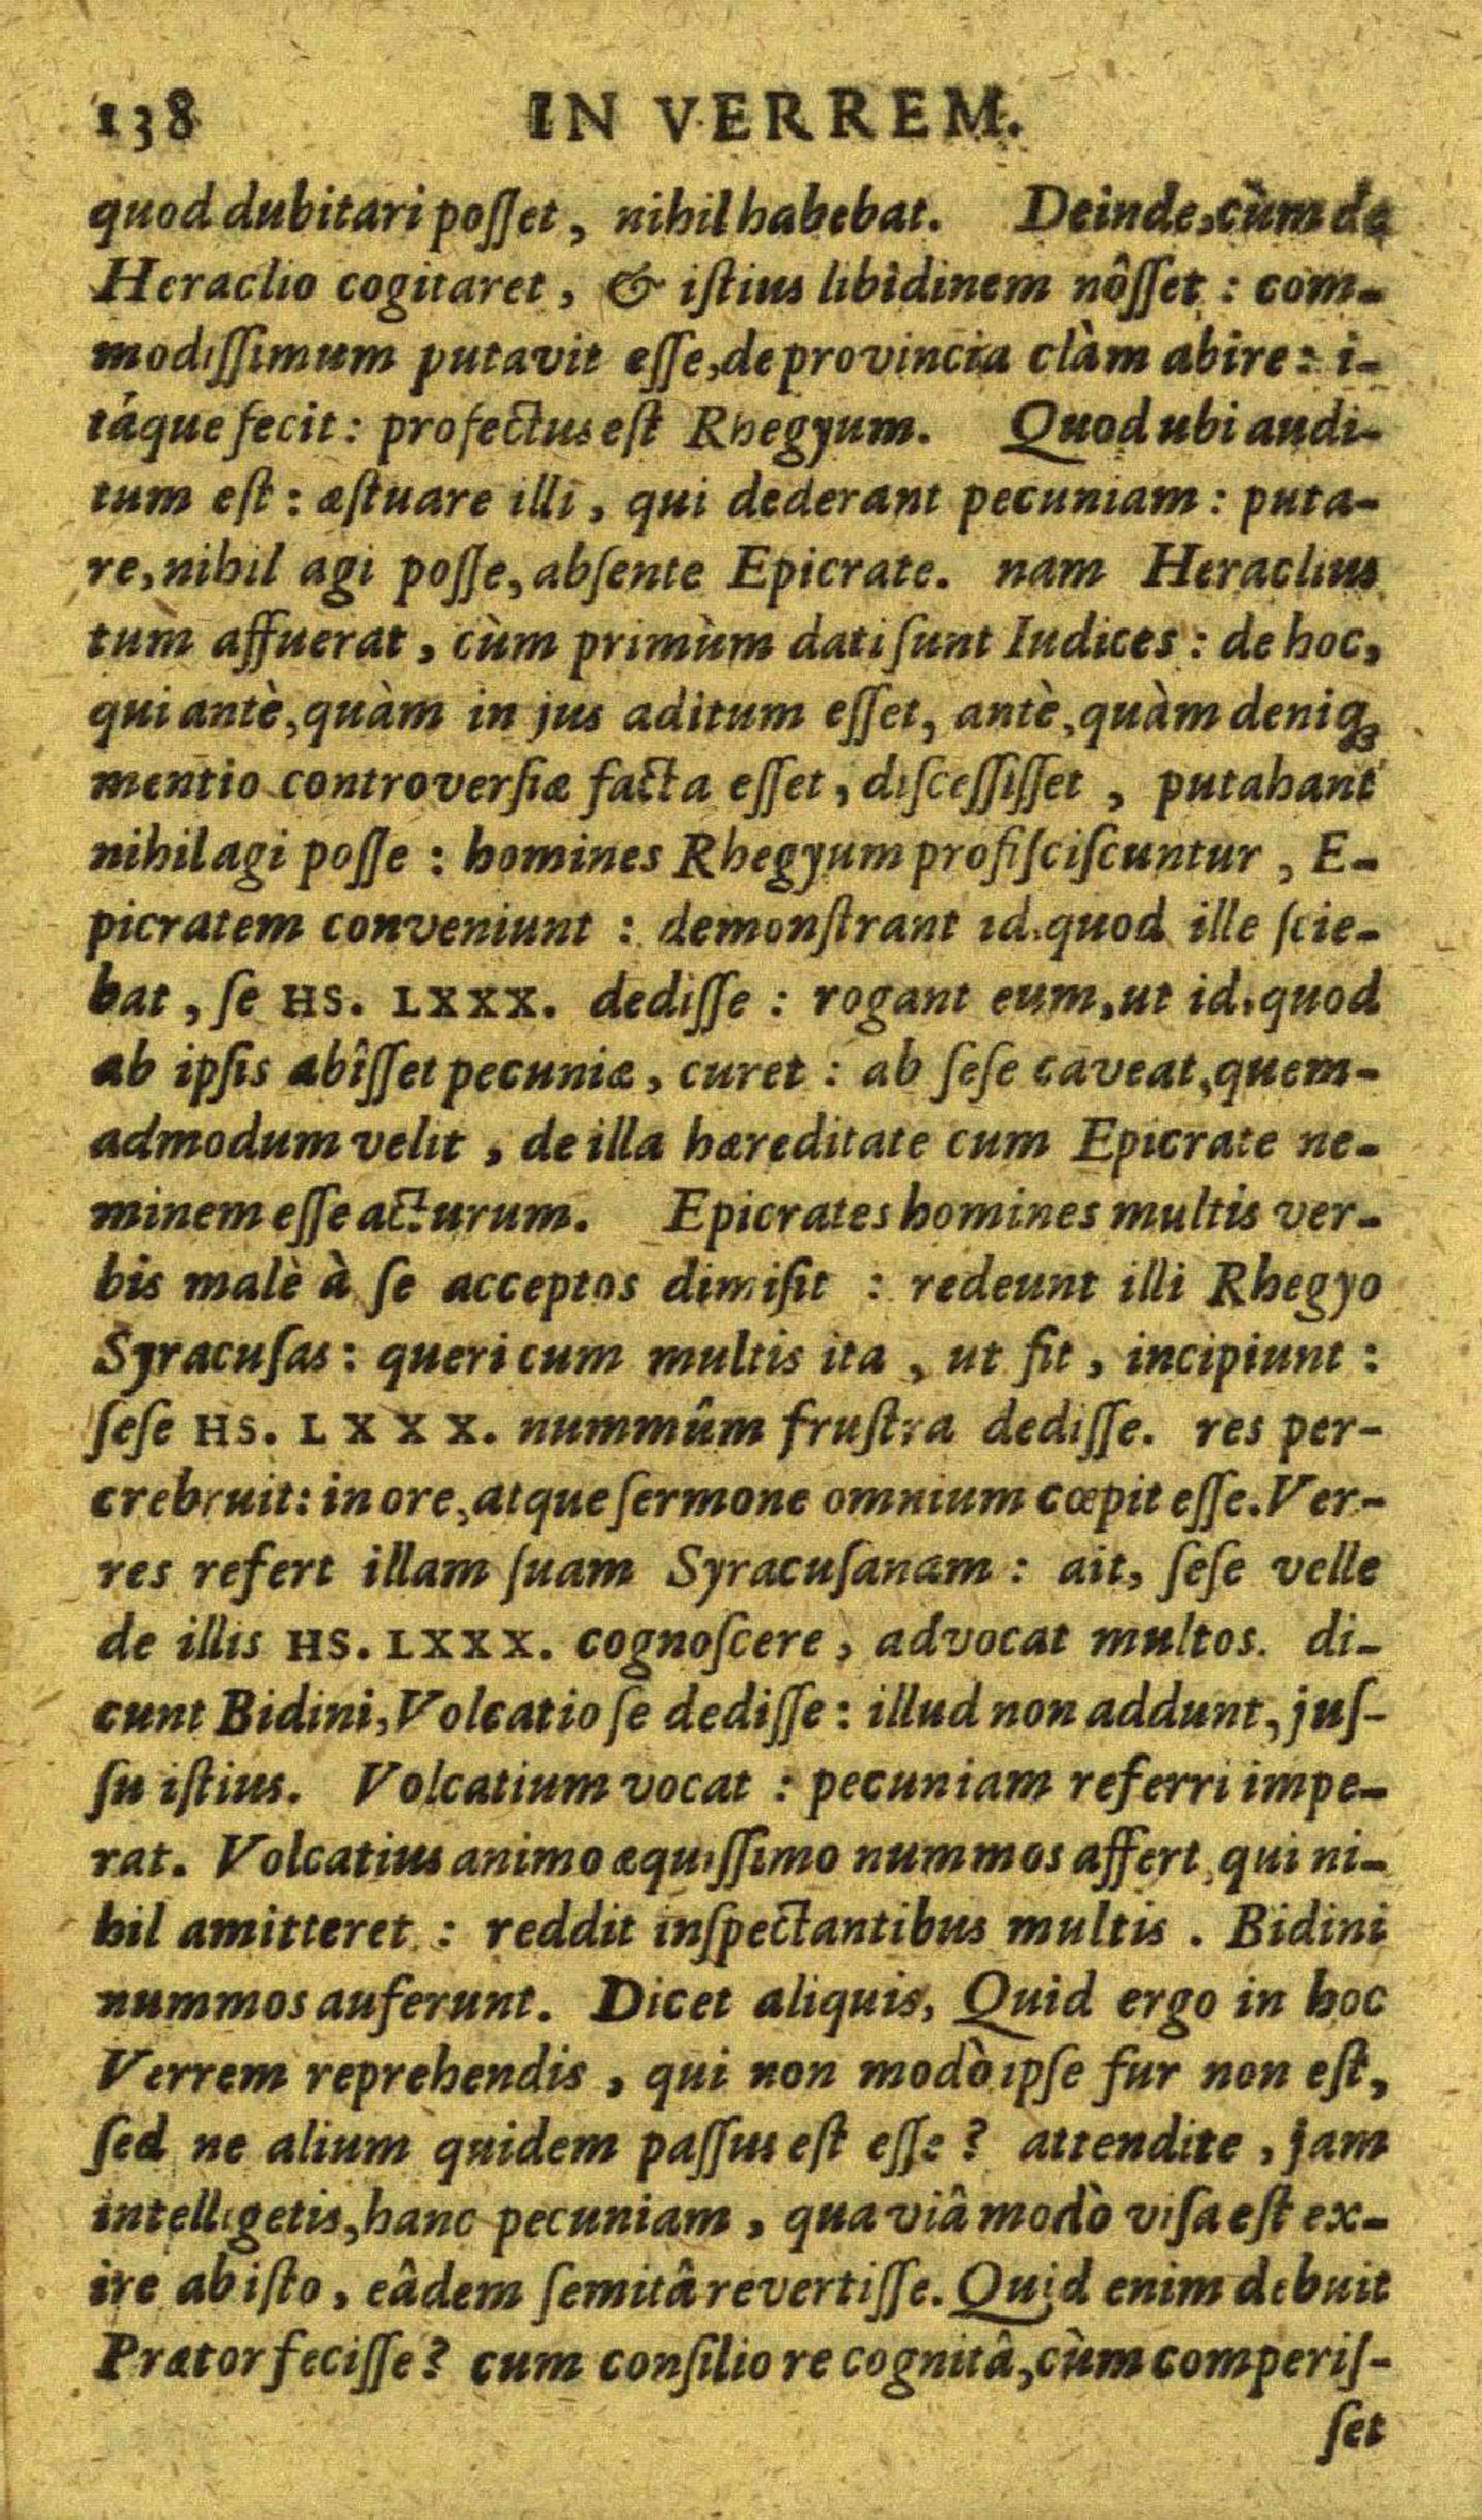 138 IN VERREM.
quod dubitari poſſet, nihil habebat. Deinde, cùm de
Heraclio cogitaret, & iſtius libidinem nôſſet : com-
modiſſimum putavit eſſe, de provincia clàm abire: i-
táque fecit: profectus eſt Rhegyum. Quod ubi audi-
tum eſt: æſtuare illi, qui dederant pecuniam: puta-
re, nihil agi poſſe, abſente Epicrate. nam Heraclius
tum affuerat, cùm primùm dati ſunt Iudices: de hoc,
qui antè, quàm in jus aditum eſſet, antè, quàm deniq;
mentio controverſiæ facta eſſet, diſceſſiſſet, putabant
nihil agi poſſe: homines Rhegyum profiſciſcuntur, E-
picratem conveniunt : demonſtrant id, quod ille ſcie-
bat, ſe HS. LXXX. dediſſe : rogant eum, ut id, quod
ab ipſis abîſſet pecuniæ, curet : ab ſeſe caveat, quem-
admodum velit, de illa hæreditate cum Epicrate ne-
minem eſſe acturum. Epicrates homines multis ver-
bis malè à ſe acceptos dimiſit : redeunt illi Rhegyo
Syracuſas: queri cum multis ita, ut fit, incipiunt :
ſeſe HS. LXXX. nummûm fruſtra dediſſe. res per-
crebruit: in ore, atque ſermone omnium cœpit eſſe. Ver-
res refert illam ſuam Syracuſanam: ait, ſeſe velle
de illis HS. LXXX. cognoſcere, advocat multos. di-
cunt Bidini, Volcatio ſe dediſſe: illud non addunt, juſ-
ſu iſtius. Volcatium vocat : pecuniam referri impe-
rat. Volcatius animo æquiſſimo nummos affert, qui ni-
hil amitteret : reddit inſpectantibus multis. Bidini
nummos auferunt. Dicet aliquis, Quid ergo in hoc
Verrem reprehendis, qui non modò ipſe fur non eſt,
ſed ne alium quidem paſſus eſt eſſe? attendite, jam
intelligetis, hanc pecuniam, qua viâ modò viſa eſt ex-
ire ab iſto, eâdem ſemitâ revertiſſe. Quid enim debuit
Prætor feciſſe? cum conſilio re cognitâ, cùm comperiſ-
ſet